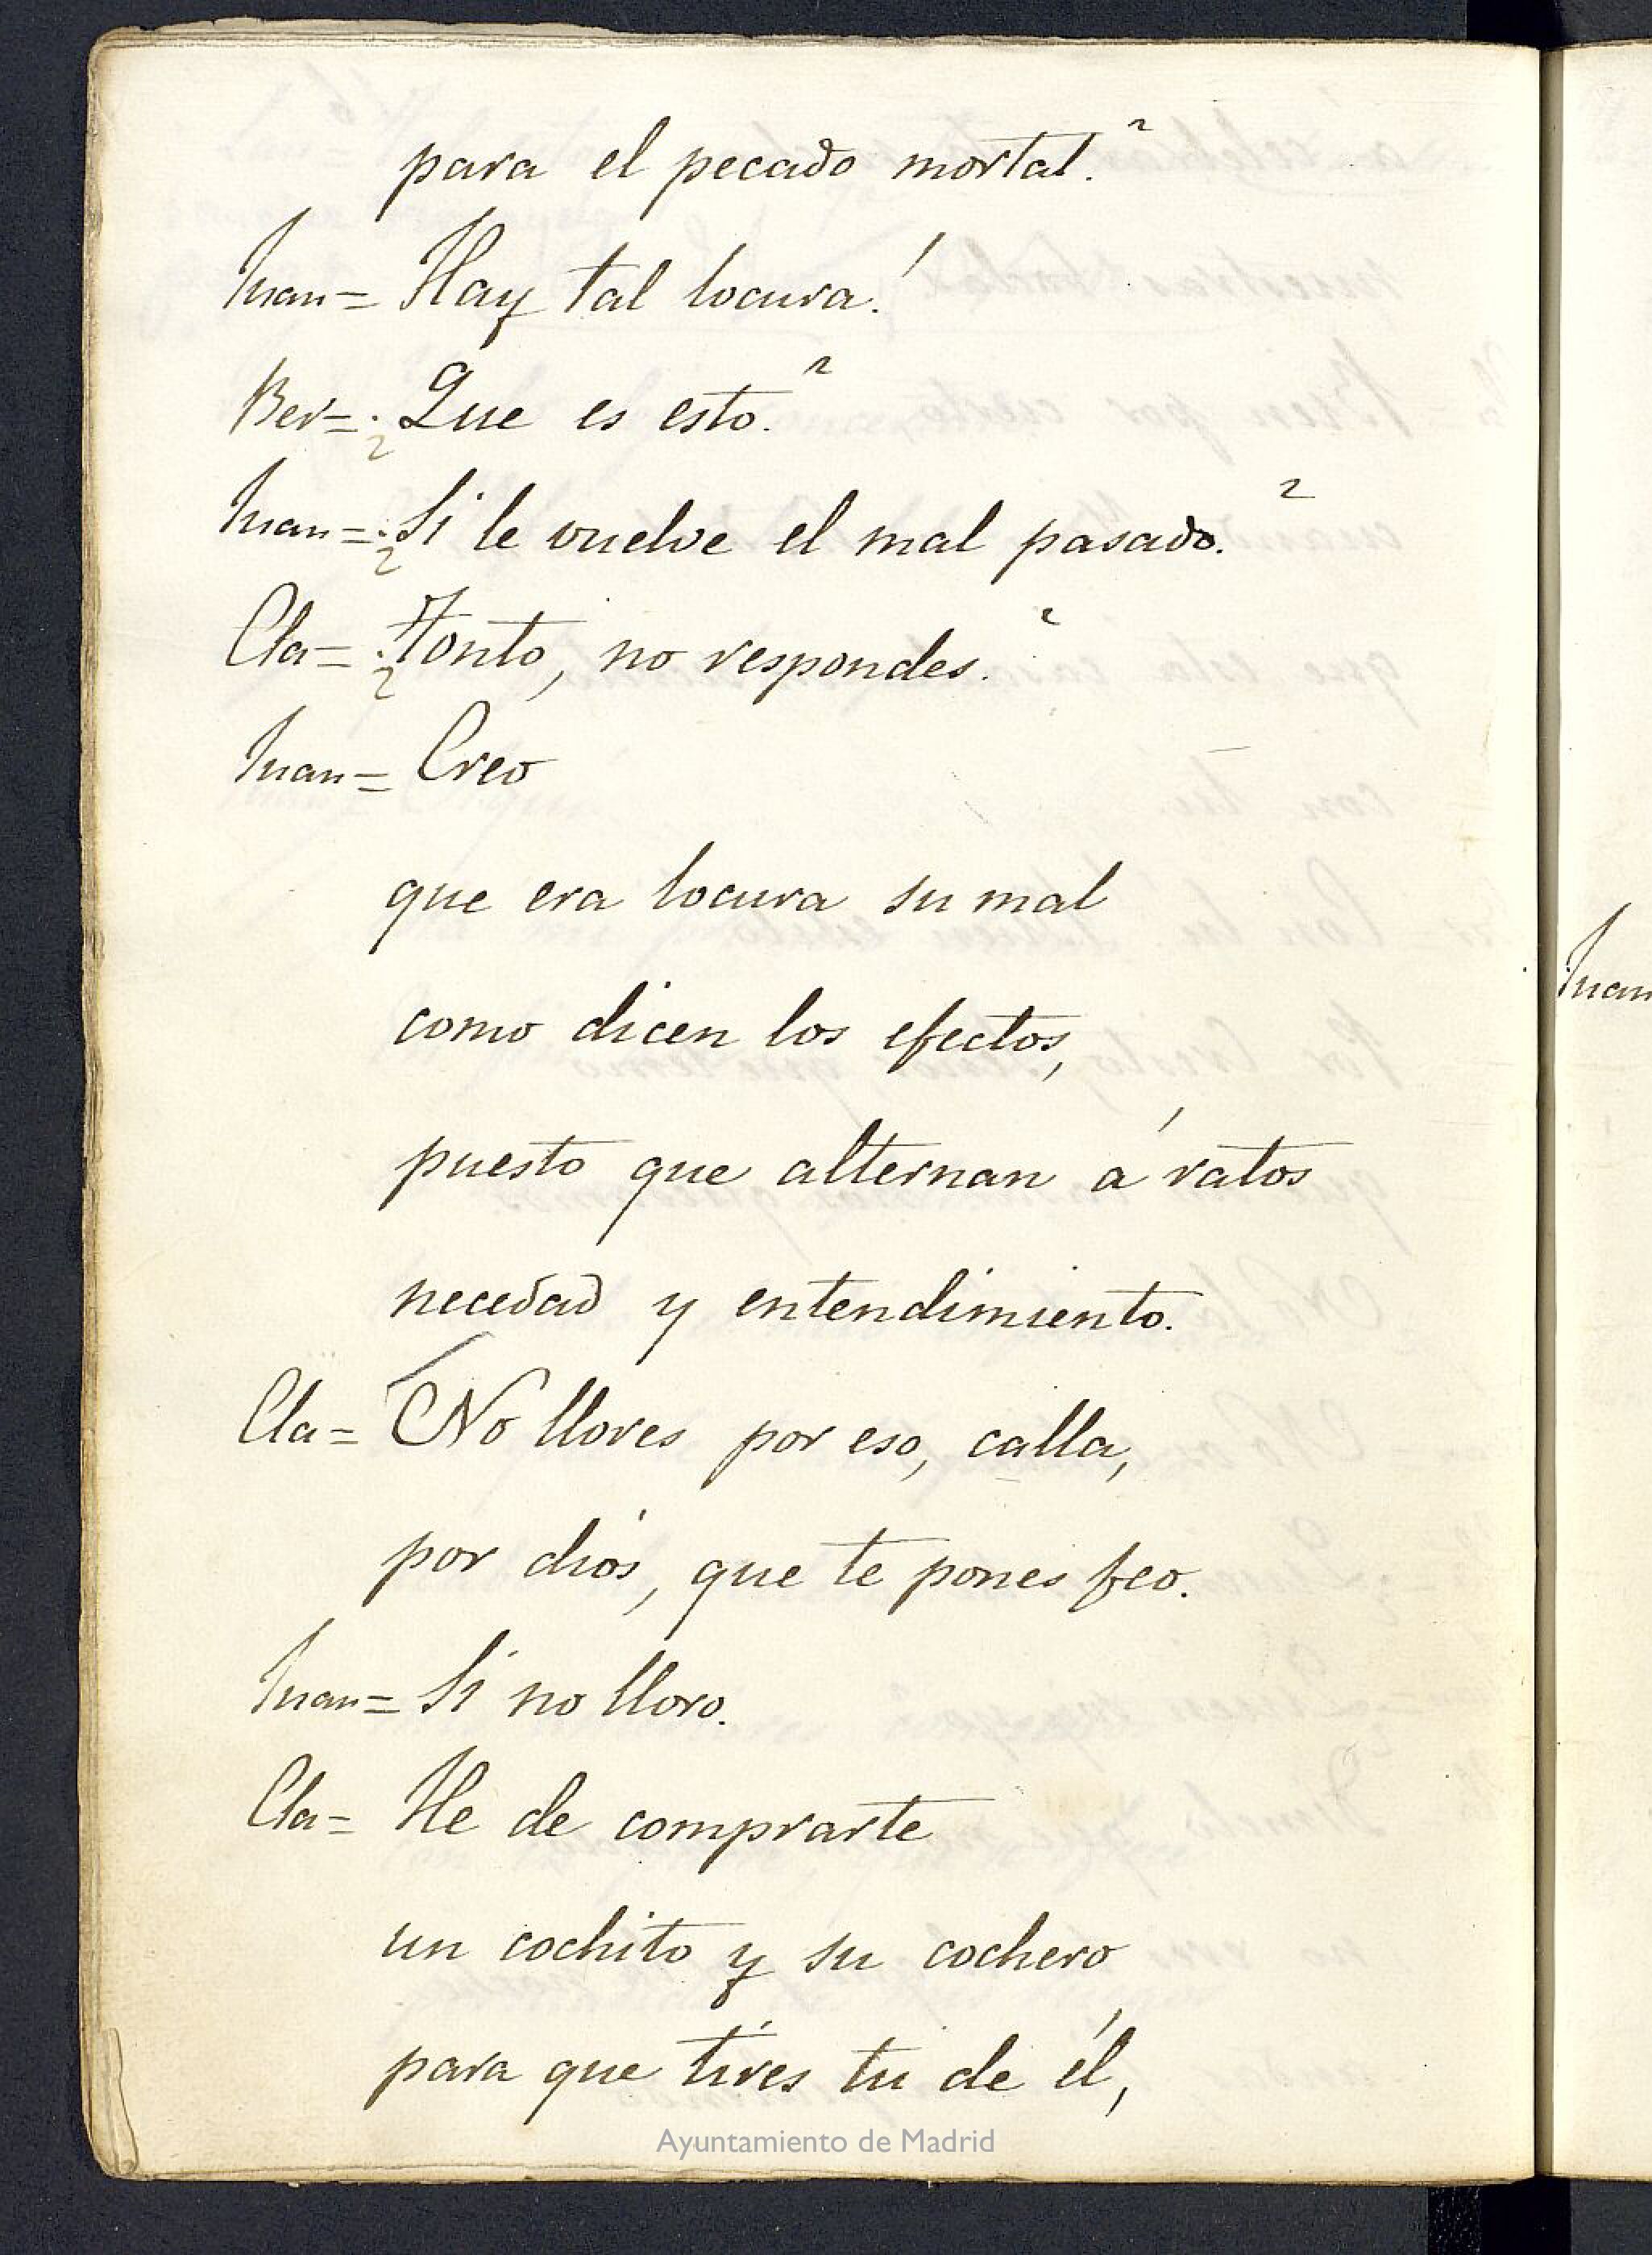 para el pecado mortal?
Juan= Hay tal locura!
Ber= ¿Que es esto?
Juan= ¿Si le vuelve el mal pasado?
Cla= ¿Tonto, no respondes?
Juan= Creo
que era locura su mal
como dicen los efectos,
puesto que alternan á ratos
necedad y entendimiento.
Cla= No llores por eso, calla,
por dios, que te pones feo.
Juan= Si no lloro.
Cla= He de comprarte
un cochito y su cochero
para que tires tu de él,
Juan
Ayuntamiento de Madrid